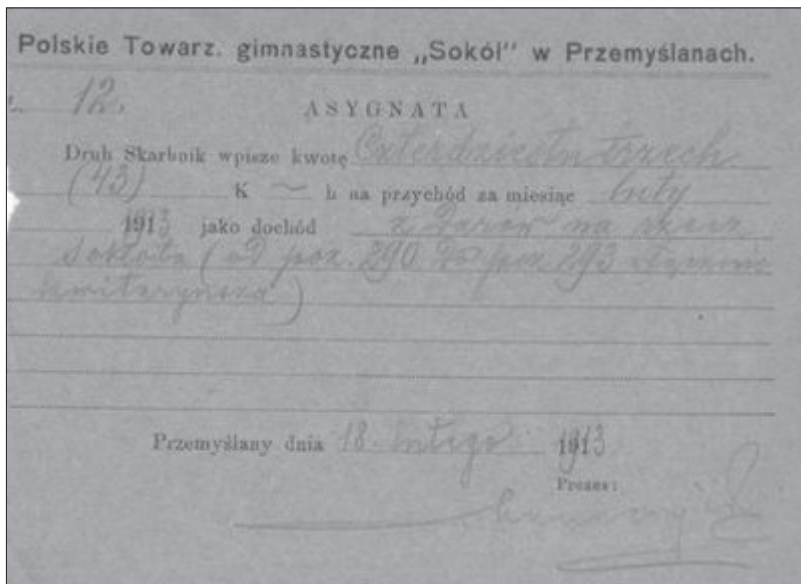 Polskie Towarz. gimnastyczne „Sokół" w Przemyślanach.
12.
ASYGNATA
Druh Skarbnik wpisze kwotę Czterdziestu trzech
(43) K ~ h na przychód za miesiąc luty
1913 jako dochód z darów na rzecz
Sokoła (od poz. 290 do poz 293 włącznie
kwitaryusza)
Przemyślany dnia 18. lutego 1913
Prezes: